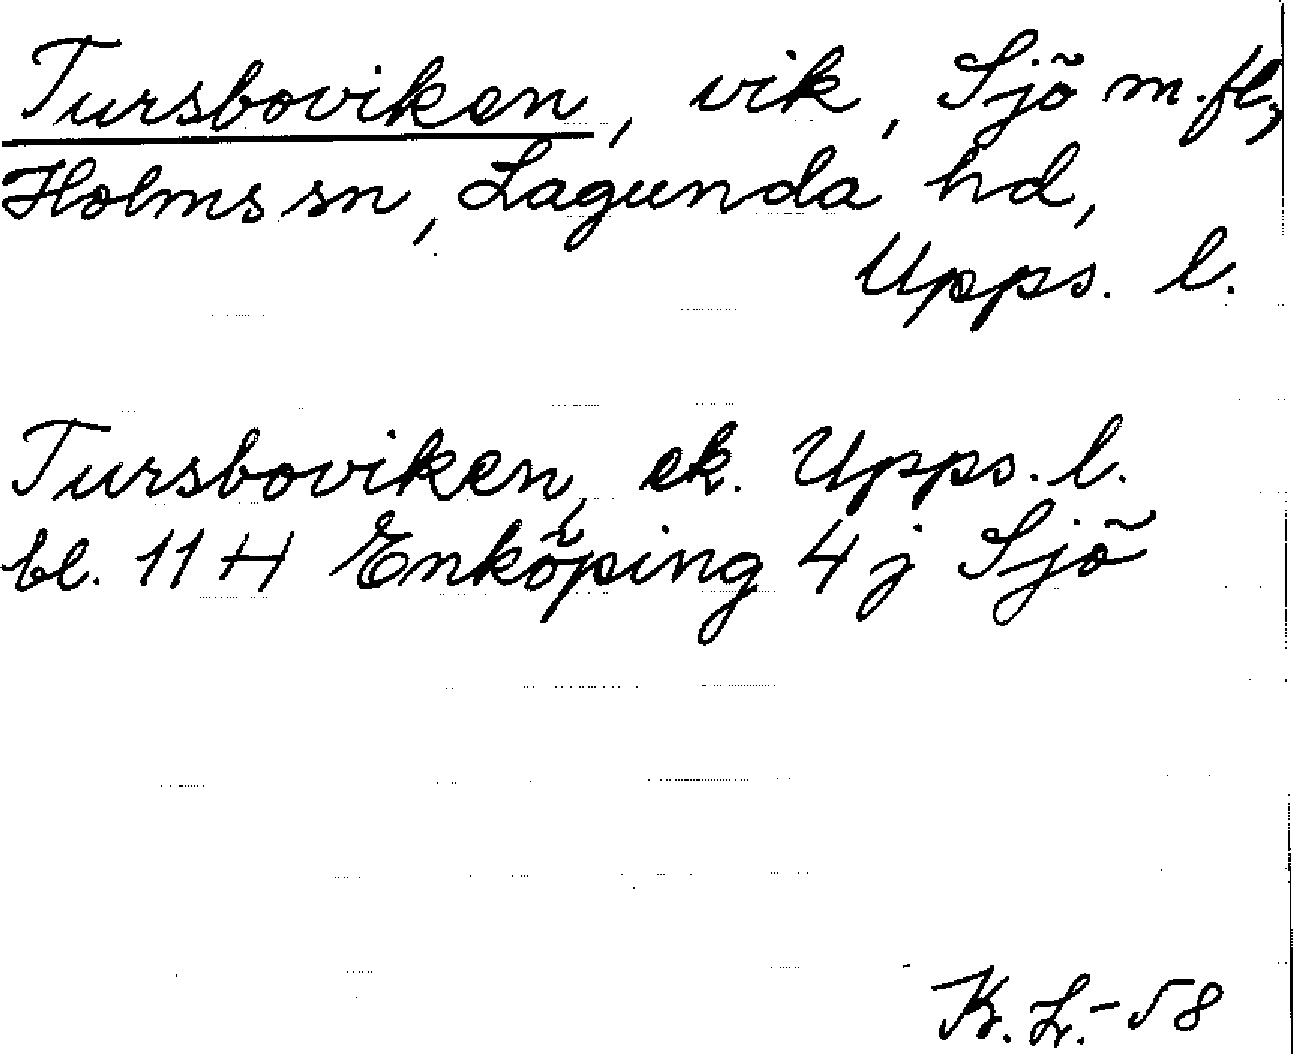 Tursboviken, vik, Sjö m.fl.,
Holms sn, Lagunda hd,
Upps. l.
Tursboviken, ek. Upps. l.
bl. 11 H Enköping 4 j Sjö
K. L. - 58